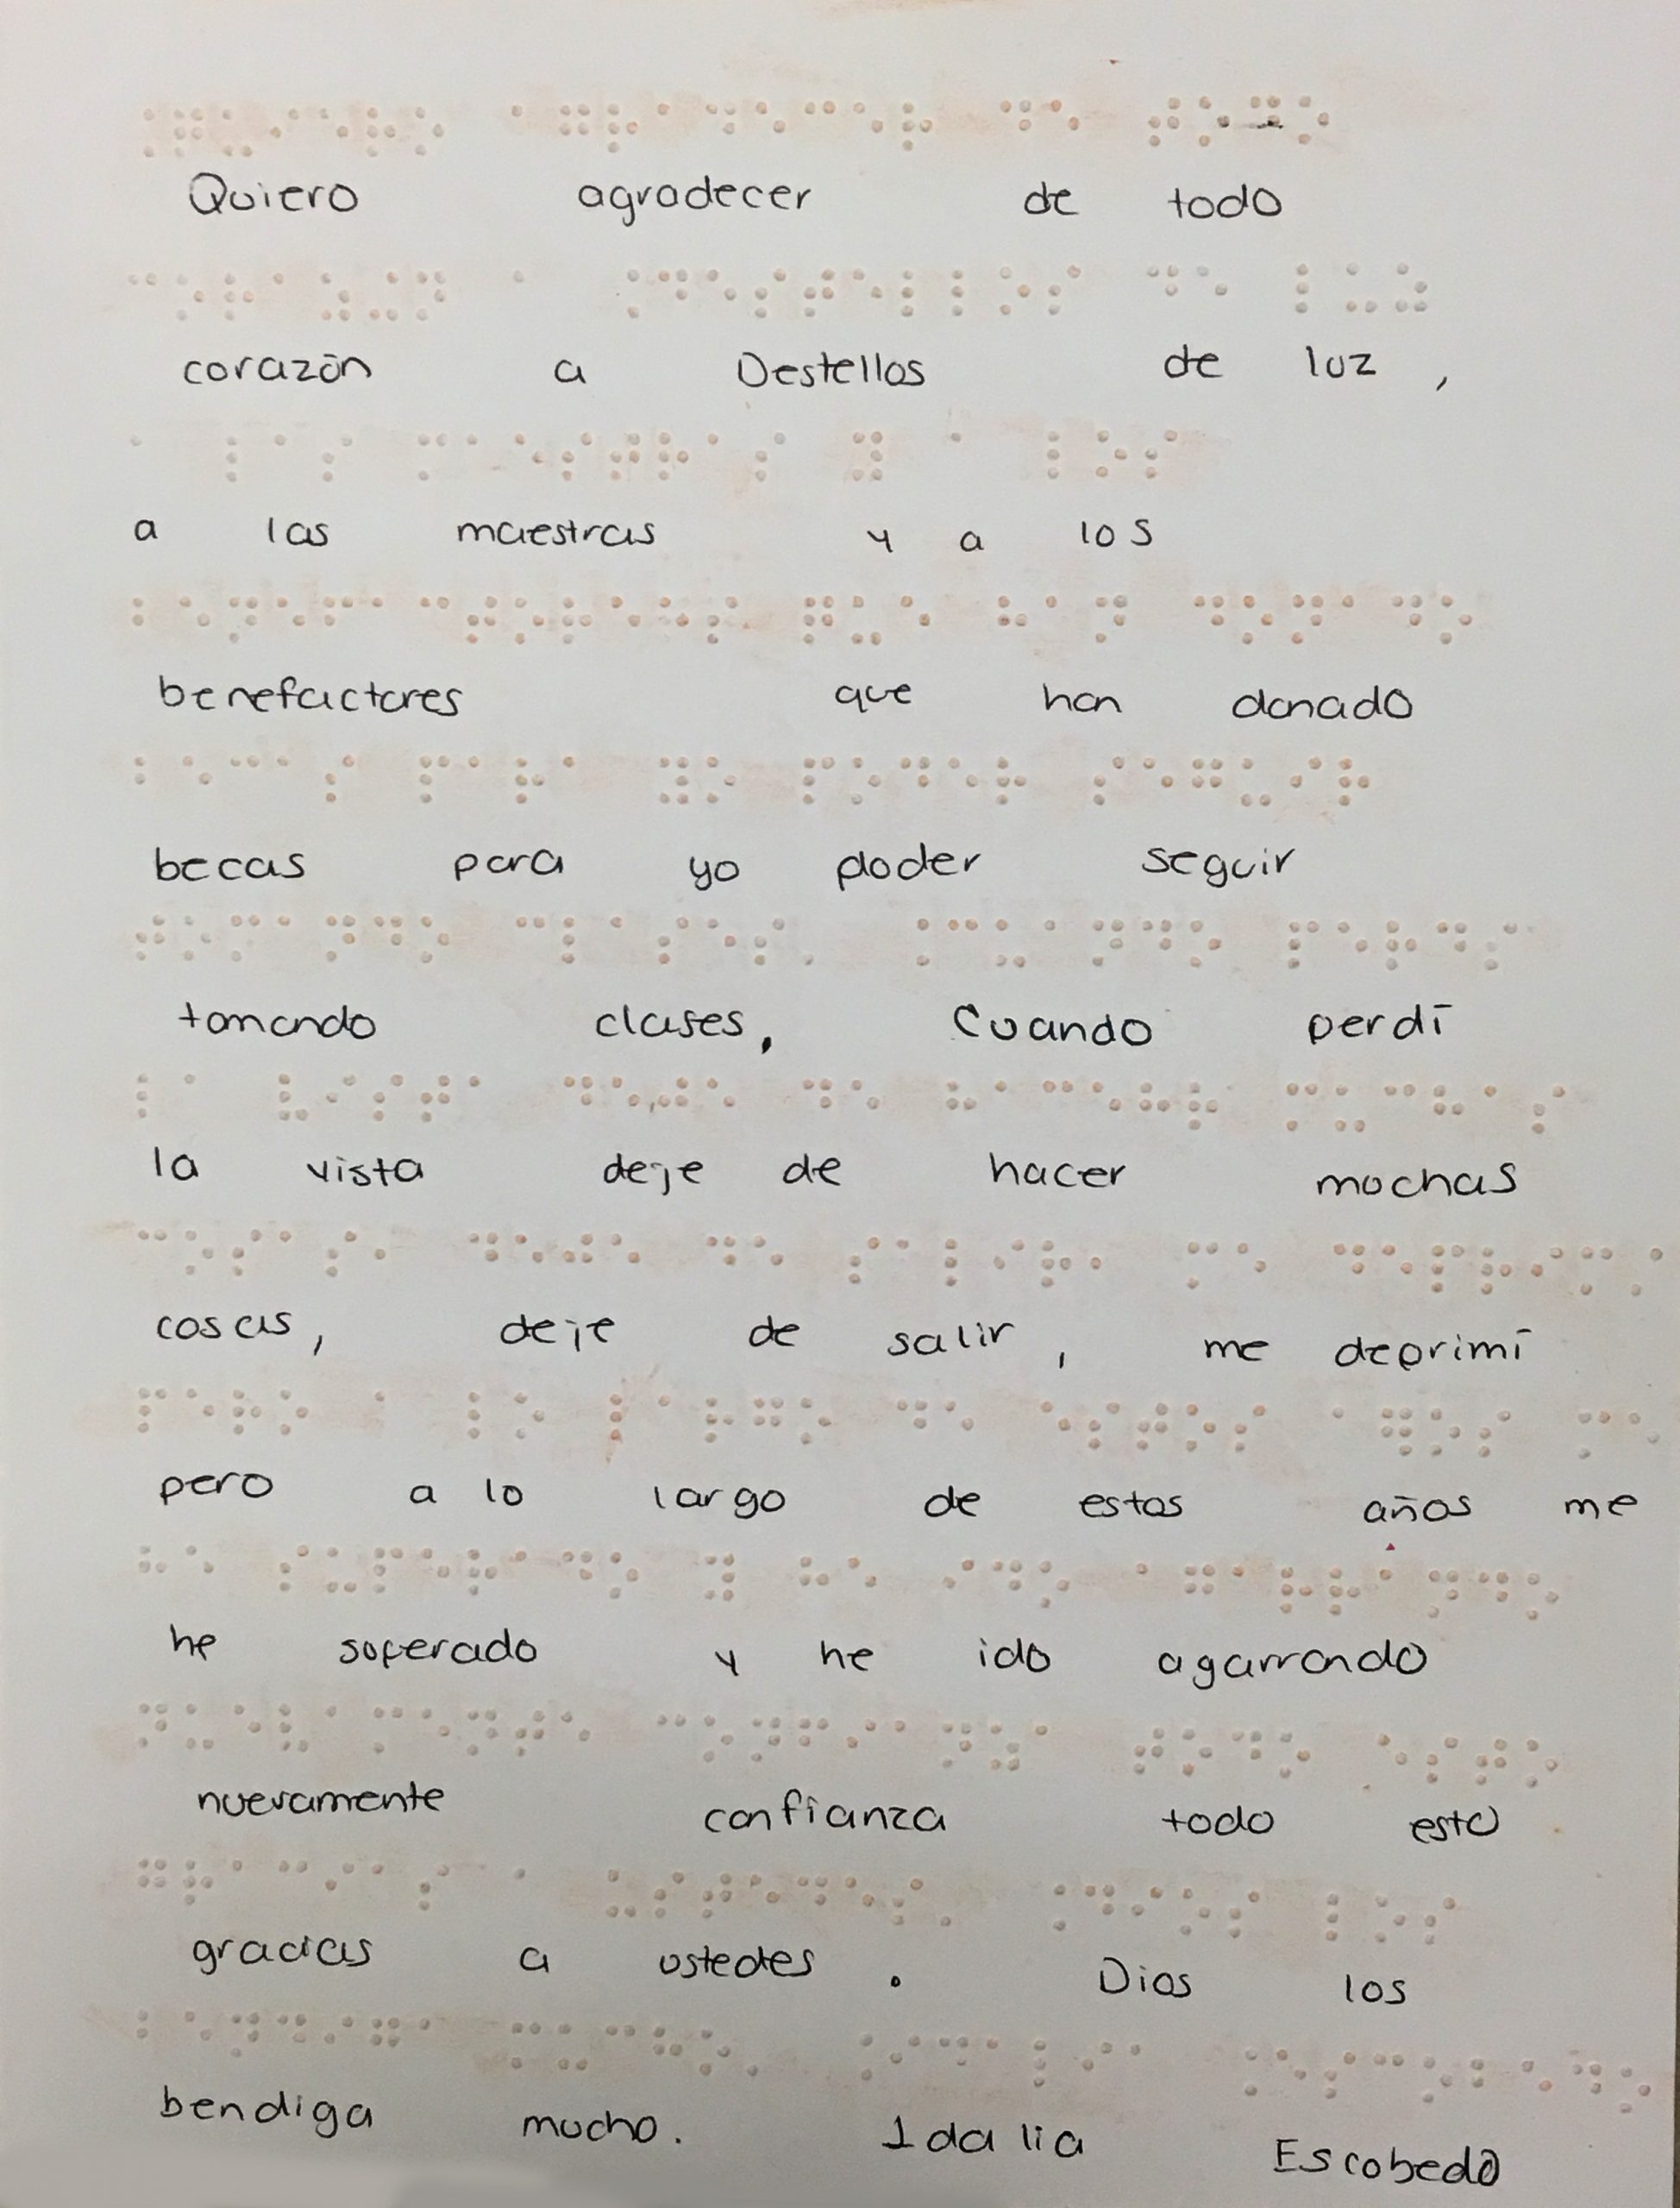 Quiero agradecer de todo
corazón a Destellos de luz,
a las maestras y a los
benefactores que han donado
becas para yo poder seguir
tomando clases, Cuando perdí
la vista deje de hacer muchas
cosas, deje de salir, me deprimí
pero a lo largo de estos años me
he superado y he ido agarrando
nuevamente confianza todo esto
gracias a ustedes. Dios los
bendiga mucho. Idalia Escobedo